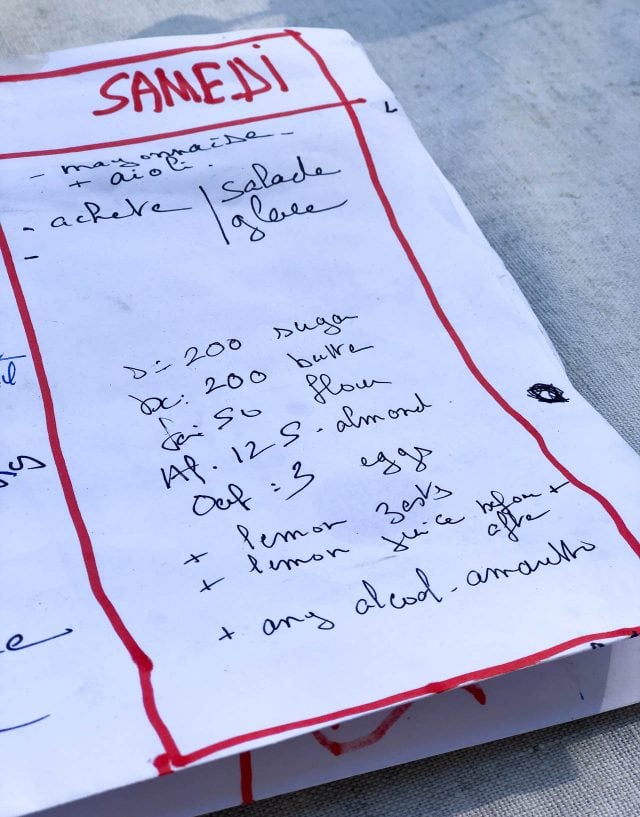 SAMEDI
- mayonnaise -
+ aioli.
- achete / salade
glace
-
S = 200 sugar
200 butte
50 flour
125 - almond
Oeuf : 3 eggs
+ lemon zests
+ lemon juice before +
after
+ any alcool - amaretto